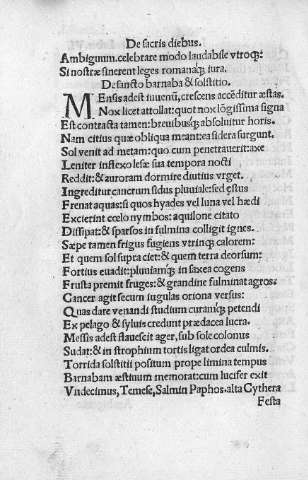 De sacris diebus.
Ambiguum.celebrare modo laudabile vtroqꝫ:
Si nostræ sinerent leges romanaqꝫ iura.
De sancto barnaba & solstitio.
MEnsis adest iuuenū,crescens acceditur æstas.
Nox licet attollat:quot nox lōgissima signa
Est contracta tamen:breuibusqꝫ absoluitur horis.
Nam citius quæ obliqua meant ea sidera surgunt.
Sol venit ad metam:quo cum penetrauerit:axe
Leniter inflexo lesæ sua tempora nocti
Reddit:& auroram dormire diutius vrget.
Ingreditur cancrum sidus pluuiale:sed ęstus
Frenat aquas:si quos hyades vel luna vel hædi
Excierint cœlo nymbos:aquilone citato
Dissipat:& sparsos in fulmina colligit ignes.
Sæpe tamen frigus fugiens vtrinqꝫ calorem:
Et quem sol supra ciet:& quem terra deorsum:
Fortius euadit:pluuiamqꝫ in saxea cogens
Frusta premit fruges:& grandine fulminat agros.
Cancer agit secum iugulas oriona versus:
Quas dare venandi studium curamqꝫ petendi
Ex pelago & syluis credunt prædacea lucra.
Messis adest flauescit ager,sub sole colonus
Sudat:& in strophium tortis ligat ordea culmis.
Torrida solstitii positum prope limina tempus
Barnabam æstiuum memorat:cum lucifer exit
Vndecimus, Temese, Salmin Paphos.alta Cythera
Festa